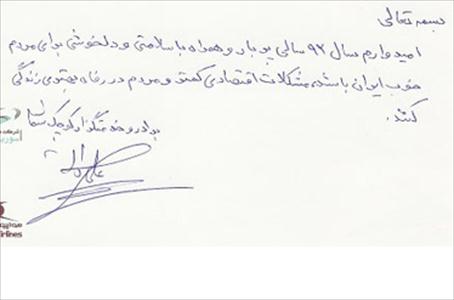 بسمه تعالی
امیدوارم سال ۹۲ سالی پر بار و همراه با سلامتی و دلخوشی برای مردم
خوب ایران باشد، مشکلات اقتصادی کمتر و مردم در رفاه بیشتری زندگی
کنند.
برادر و خدمتگزار کوچک شما
علی دایی
irlines